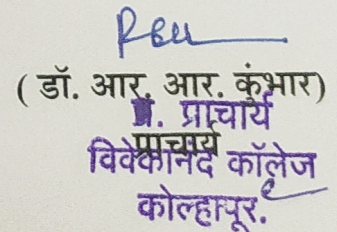 ( डॉ. आर. आर. कुंभार)
प्र. प्राचार्य
प्राचार्य
विवेकानंद कॉलेज
कोल्हापूर.